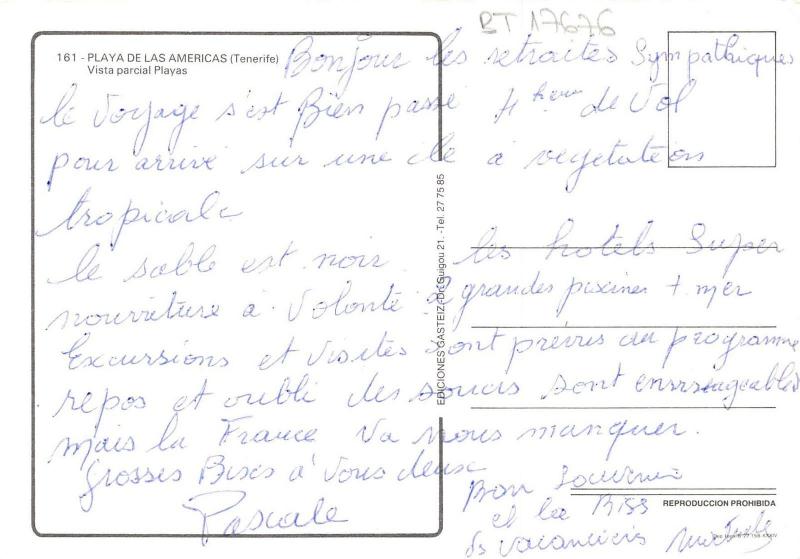 BT 17676
161 - PLAYA DE LAS AMERICAS (Tenerife)
Vista parcial Playas
Bonjour les retraités sympathiques
le voyage s'est Bien passé 4 heure de Vol
pour arrivé sur une île à vegetation
tropicale
le sable est noir. les hotels Super
nourriture à volonté 2 grandes piscines + mer
Excursions et visites sont prévus au programme
repos et oublié des soucis sont envisageables
mais la France va nous manquer.
Grosses Bises à vous deux
Pascale
Bon souvenir
et la Biss
des vacanciers
EDICIONES GASTEIZ-Dr. Guigou 21. -Tel. 27 75 85
REPRODUCCION PROHIBIDA